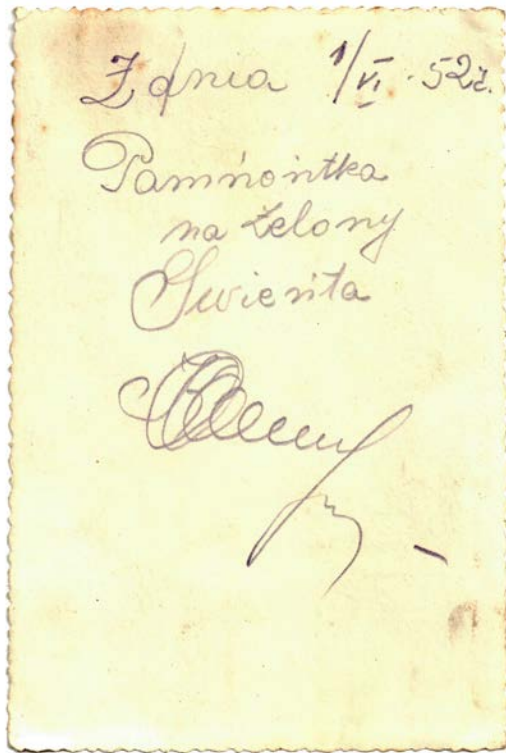 Z dnia 1/VI. 52ż.
Pamńontka
na żelony
Swienta